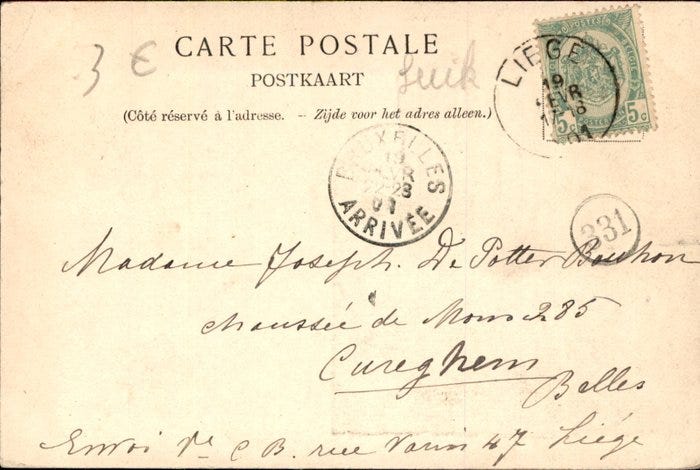 CARTE POSTALE
POSTKAART
(Côté réservé à l'adresse. – Zijde voor het adres alleen.)
3 €
Luik
POSTES
5c 5c
LIEGE
19
FEVR
01
BRUXELLES
19
FEVR
22-23
01
ARRIVÉE
331
Madame Joseph. De Potter Bouhon
chaussée de Mons 285
Cureghem
Belles
Envoi Ve C B. rue Varin 47 Liége